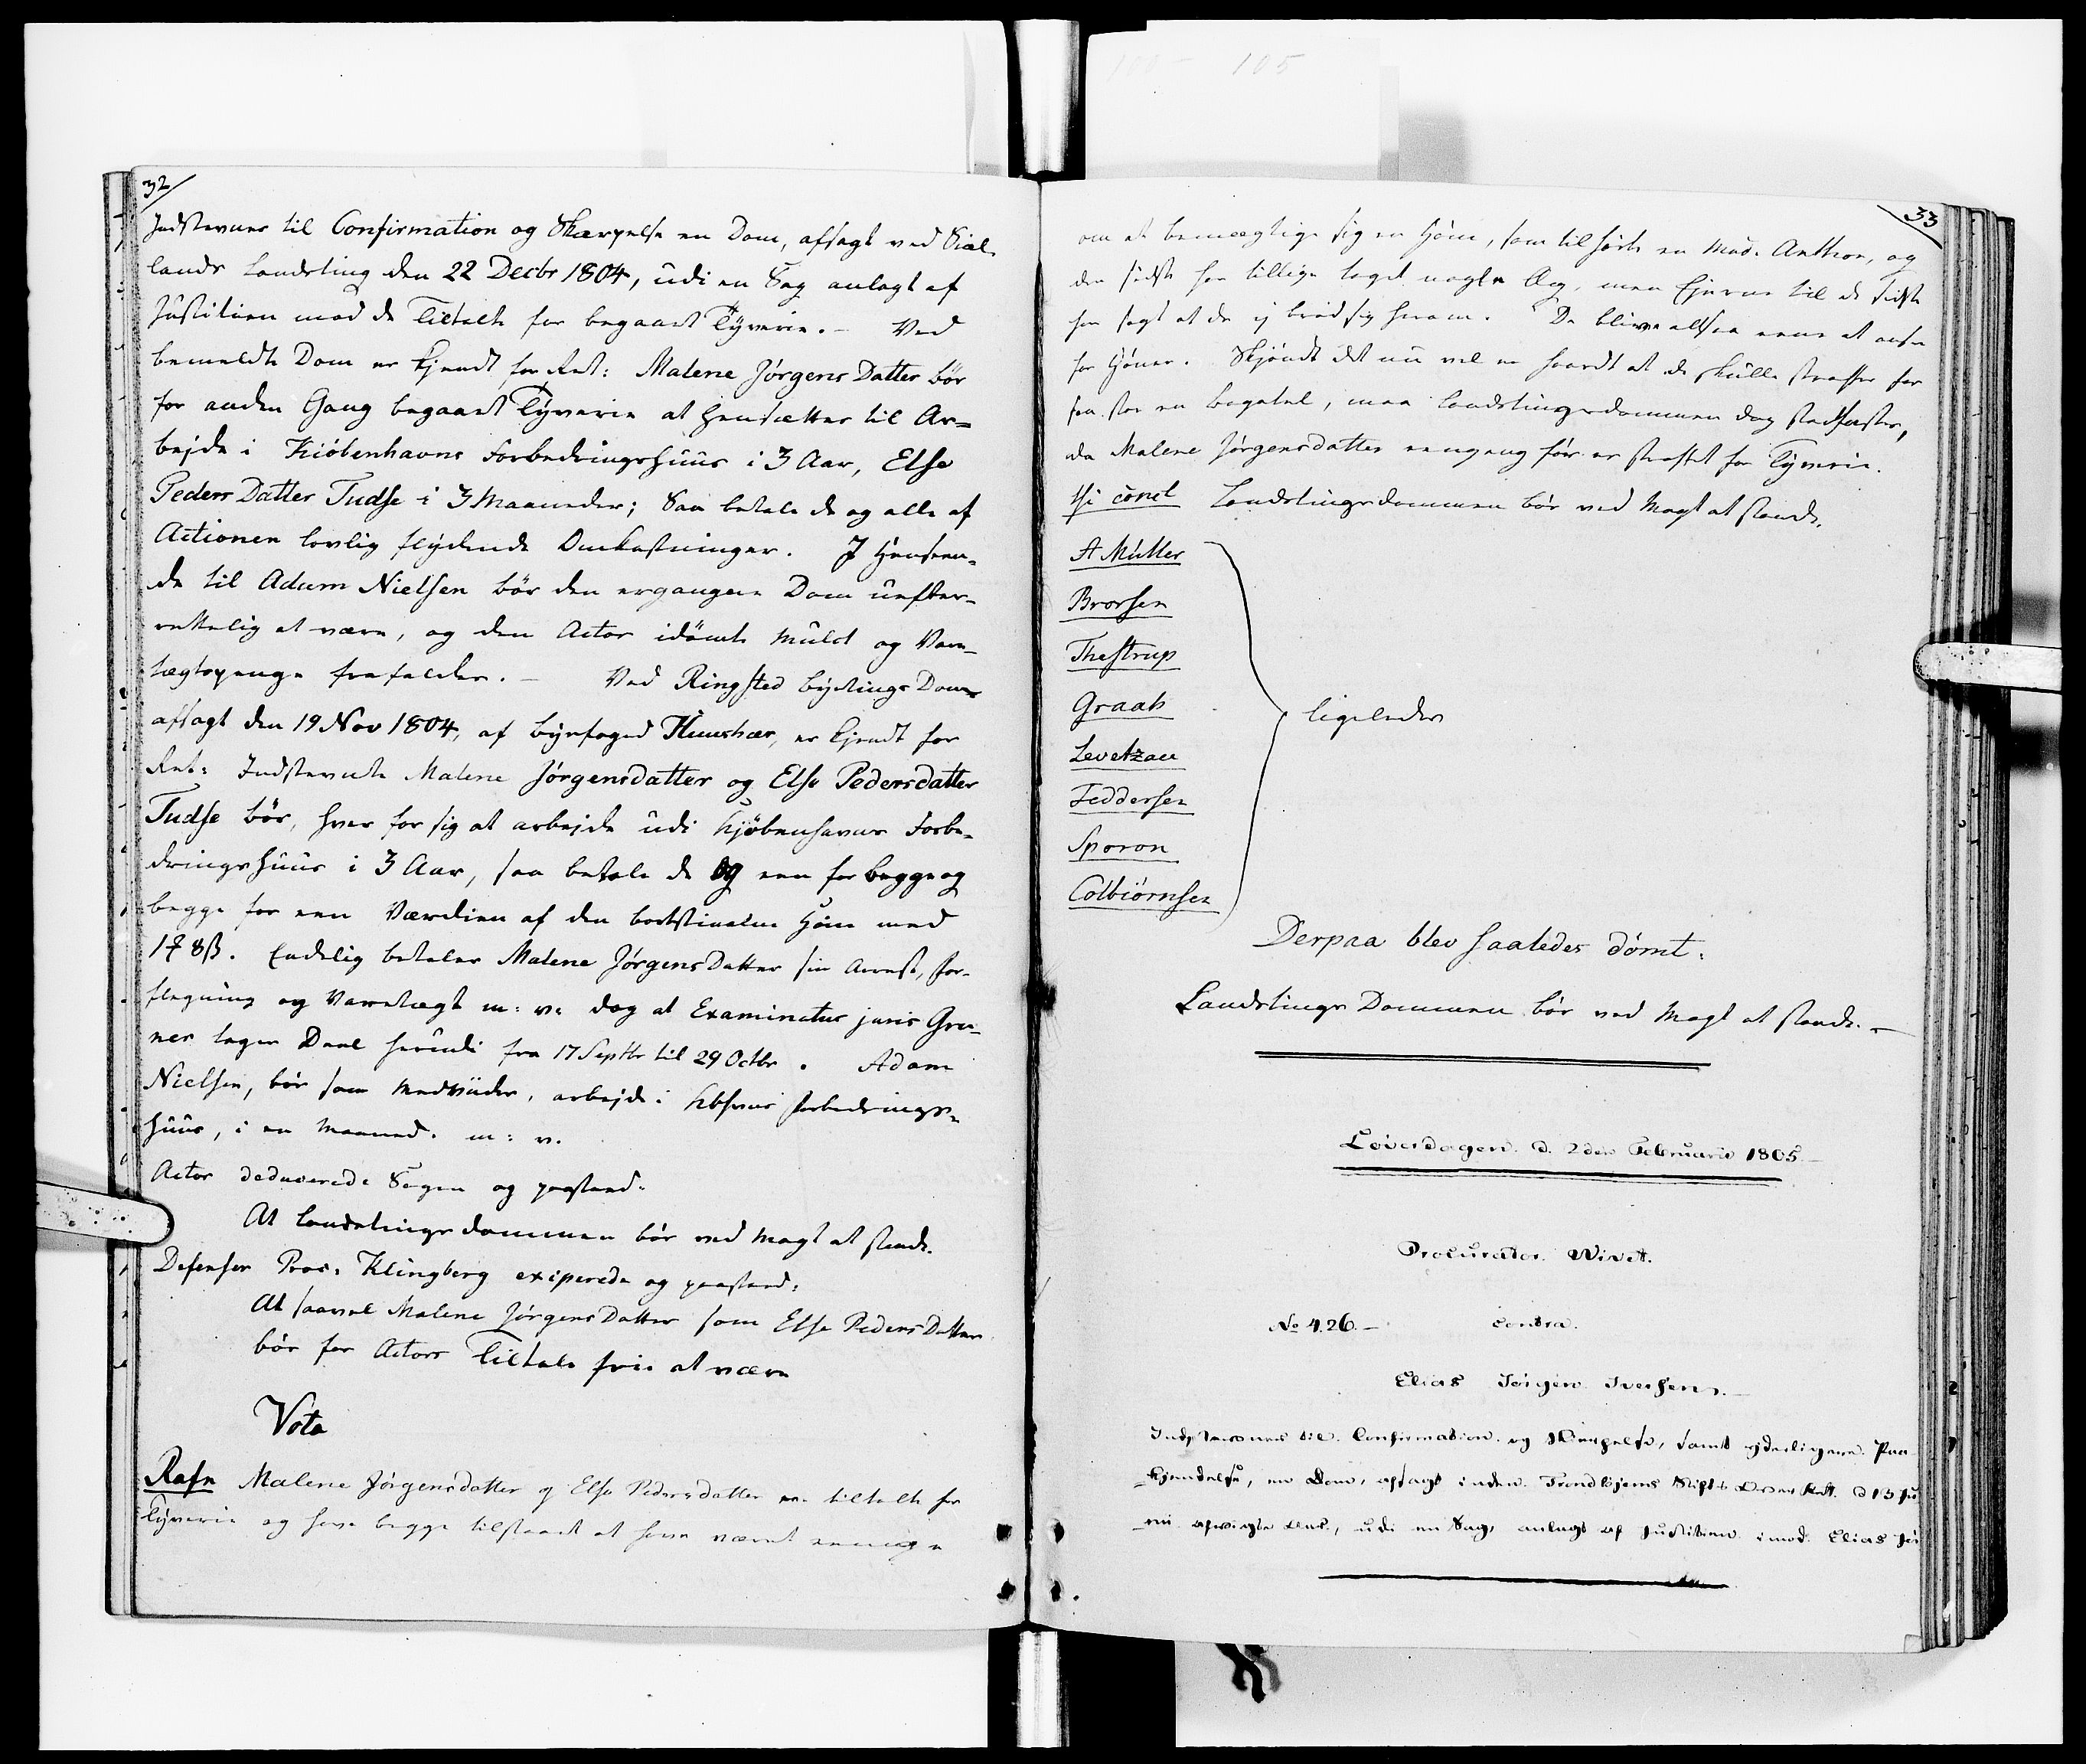 32
Indstevner til Confirmation og Skærpelse en Dom, afsagt ved Siæl-
lands Landsting den 22 Decbr 1804, udi en Sag anlagt af
Justitien mod de Tiltalte for begaaet Tyverie. – Ved
bemeldte Dom er kjendt for Ret: Malene Jørgens Datter bør
for anden Gang begaaet Tyverie at hensættes til Ar=
bejde i Kiøbenhavns Forbedringshuus i 3 Aar, Else
Peders Datter Tudse i 3 Maaneder; Saa betale de og alle af
Actionen lovlig flydende Omkostninger. I Henseen-
de til Adam Nielsen bør den ergangne Dom uefter-
rettelig at være, og den Actor idømte Mulct og Vare-
tægtspenge frafalder. – Ved Ringsted Bytings Dom
afsagt den 19 Nov 1804, af Byefoged er kjendt for
Ret: Indstevnte Malene Jørgensdatter og Else Pedersdatter
Tudse bør, hver for sig at arbejde udi Kjøbenhavns Forbe-
dringshuus i 3 Aar, saa betale de og een for begge og
begge for een Værdien af den bortstiaalne Høne med
1 ₰ 8 ß. Endelig betaler Malene Jørgens Datter sin Arrest, For-
flegning og Varetægt m: v: dog at Examinatus juris Gru-
ner tager Deel herudi fra 17 Septbr til 29 Octbr. Adam
Nielsen, bør som Medvider, arbejde i Kbhvns Forbedrings-
huus, i en Maaned. m: v.
Actor deducerede Sagen og paastod.
At Landstingsdommen bør ved Magt at stande.
Defensor Proc: Klingberg exiperede og paastod:
At saavel Malene Jørgens Datter som Else Peders Datter
bør for Actors Tiltale frie at være
Vota
Rafn Malene Jørgensdatter og Else Pedersdatter ere tiltalte for
Tyverie og have begge tilstaaet at have været eenige
33
om at bemægtige sig en Høne, som tilhørte en Mad. Anthon, og
den sidste har tillige taget nogle Æg, men Ejeren til de sidste
har sagt at de ej brød sig herom. De blive altsaa eene at ansee
for Hønen. Skjøndt det nu vel er haardt at de skulle straffes for
saa stor en Bagatel, maa Landstingsdommen dog stadfæstes,
da Malene Jørgensdatter eengang før er straffet for Tyverie.
thi concl Landstingsdommen bør ved Magt at stande.
A Müller
Brorsen
Thestrup
Graah
Levetzau
Feddersen
Sporon
Colbiørnsen
ligeledes
Derpaa blev saaledes dømt.
Landstings Dommen bør ved Magt at stande. –
Løverdagen d. 2den Februarii 1805. –
Procurator Wivet.
No 426. – contra.
Elias Jørgen Iversen. –
Indstævner til Confirmation og Skierpelse, samt yderligere Paa-
kjendelse, en Dom, afsagt inden Trondhjems Stifts Overret d 13 Ju
nii afvigte Aar, udi en Sag, anlagt af Justitien imod Elias Jør